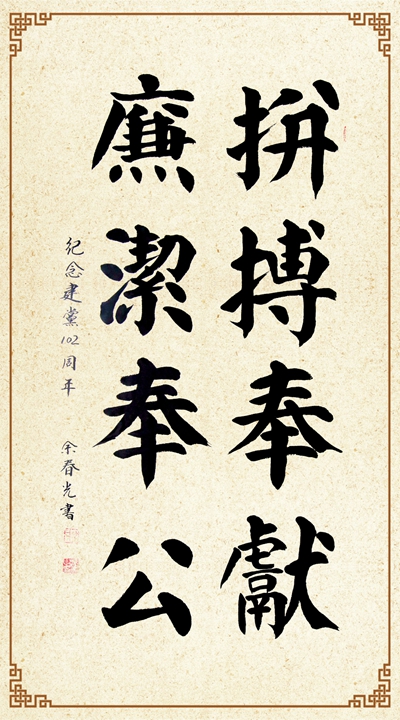 拚搏奉獻
廉潔奉公
紀念建黨102周年
余春光書